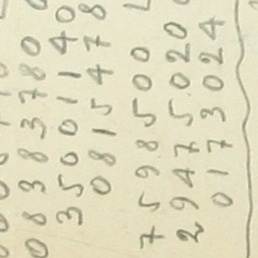 0838378 0
3500 1140
0815478
7598500
29475020
0173024